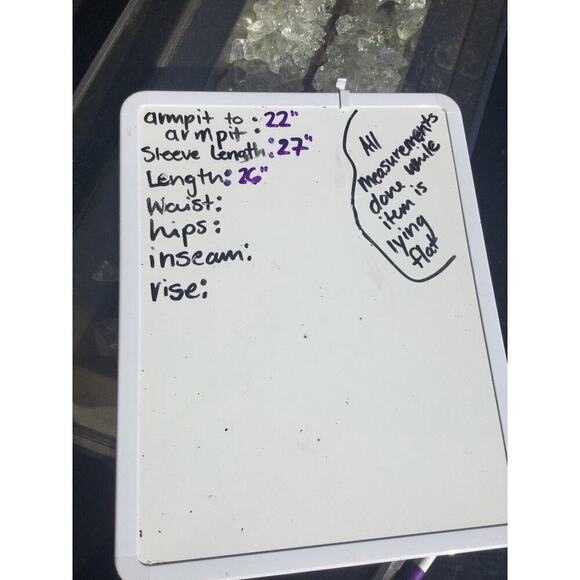 armpit to : 22"
armpit :
Sleeve Length: 27"
Length: 26"
Waist:
hips:
inseam:
rise:
All
measurements
done while
item is
lying
flat